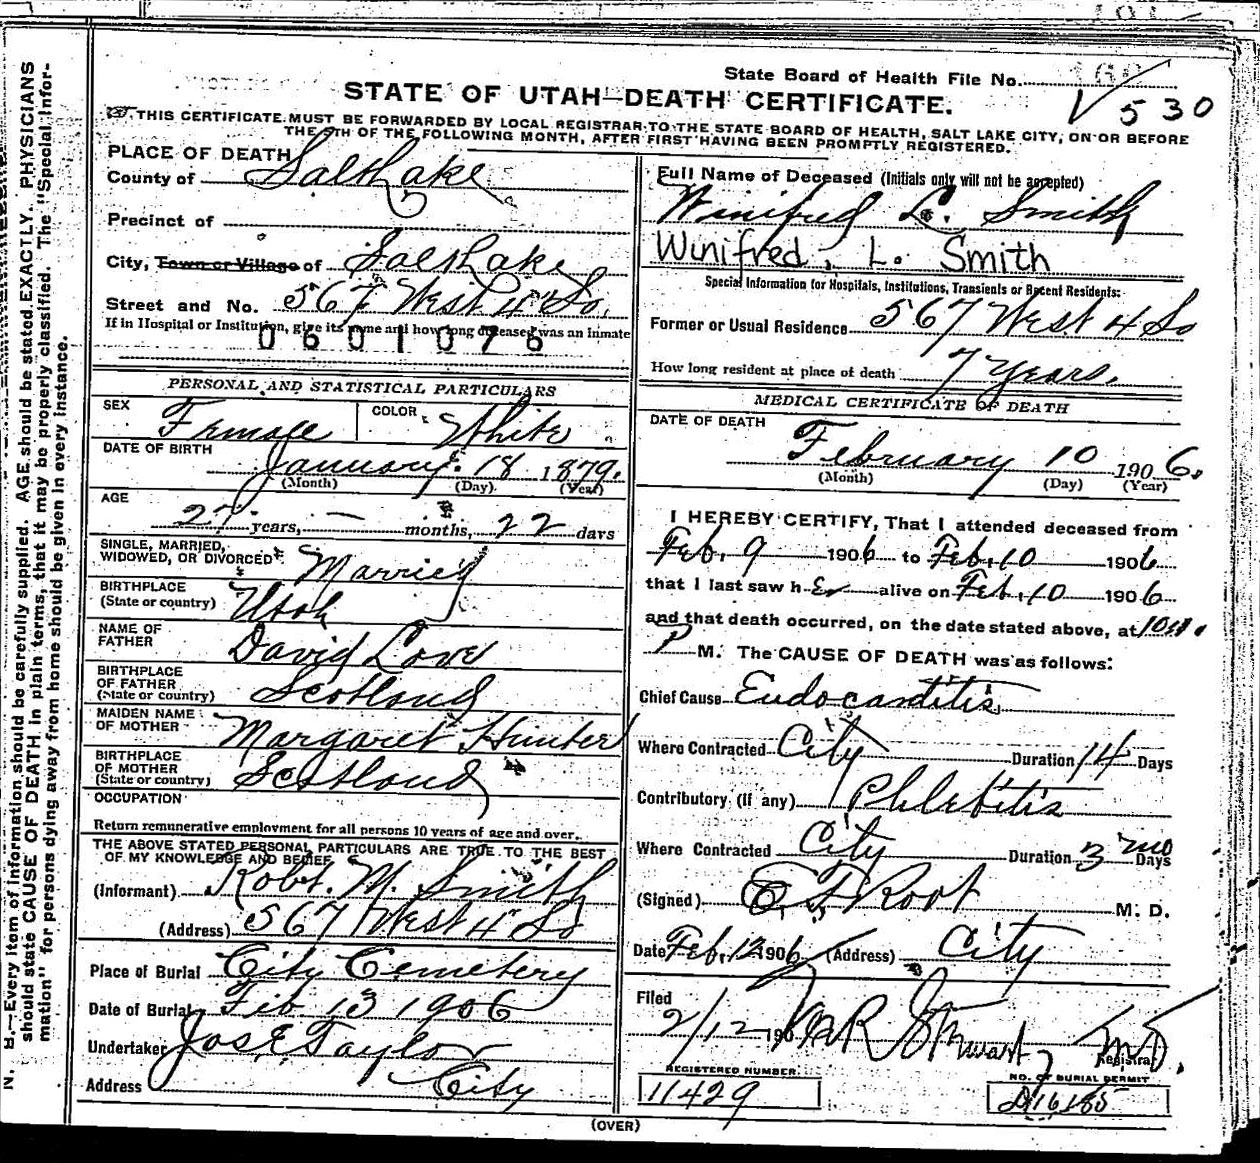 State Board of Health File No.
530
STATE OF UTAH—DEATH CERTIFICATE.
THIS CERTIFICATE MUST BE FORWARDED BY LOCAL REGISTRAR TO THE STATE BOARD OF HEALTH, SALT LAKE CITY, ON OR BEFORE
THE 5TH OF THE FOLLOWING MONTH, AFTER FIRST HAVING BEEN PROMPTLY REGISTERED.
PLACE OF DEATH
County of Salt Lake
Precinct of
City, Town or Village of Salt Lake
Street and No. 567 West 4 So.
If in Hospital or Institution, give its name and how long deceased was an inmate
0601076
PERSONAL AND STATISTICAL PARTICULARS
SEX Female COLOR White
DATE OF BIRTH
January 18 1879.
(Month) (Day) (Year)
AGE
27 years, — months, 22 days
SINGLE, MARRIED,
WIDOWED, OR DIVORCED Married
BIRTHPLACE
(State or country) Utah
NAME OF
FATHER David Love
BIRTHPLACE
OF FATHER
(State or country) Scotland
MAIDEN NAME
OF MOTHER Margaret Hunter
BIRTHPLACE
OF MOTHER
(State or country) Scotland
OCCUPATION
Return remunerative employment for all persons 10 years of age and over.
THE ABOVE STATED PERSONAL PARTICULARS ARE TRUE TO THE BEST
OF MY KNOWLEDGE AND BELIEF
(Informant) Robt. M. Smith
(Address) 567 West 4 So
Place of Burial City Cemetery
Date of Burial Feb 13 1906
Undertaker Jos E Taylor
Address City
Full Name of Deceased (Initials only will not be accepted)
Winifred L. Smith
Winifred. L. Smith
Special Information for Hospitals, Institutions, Transients or Recent Residents:
Former or Usual Residence 567 West 4 So
How long resident at place of death 7 Years.
MEDICAL CERTIFICATE OF DEATH
DATE OF DEATH
February 10 1906.
(Month) (Day) (Year)
I HEREBY CERTIFY, That I attended deceased from
Feb. 9 1906 to Feb. 10 1906
that I last saw her alive on Feb. 10 1906
and that death occurred, on the date stated above, at
P M. The CAUSE OF DEATH was as follows:
Chief Cause Endocarditis
Where Contracted City Duration 14 Days
Contributory (if any) Phlebitis
Where Contracted City Duration 3 mo Days
(Signed) E. F. Root M. D.
Date Feb. 12 1906 (Address) City
Filed
2/12 190
M.D.
Registrar
REGISTERED NUMBER
11429
NO. OF BURIAL PERMIT
(OVER)
N. B.—Every item of information should be carefully supplied. AGE should be stated EXACTLY. PHYSICIANS
should state CAUSE OF DEATH in plain terms, that it may be properly classified. The "Special Infor-
mation" for persons dying away from home should be given in every instance.